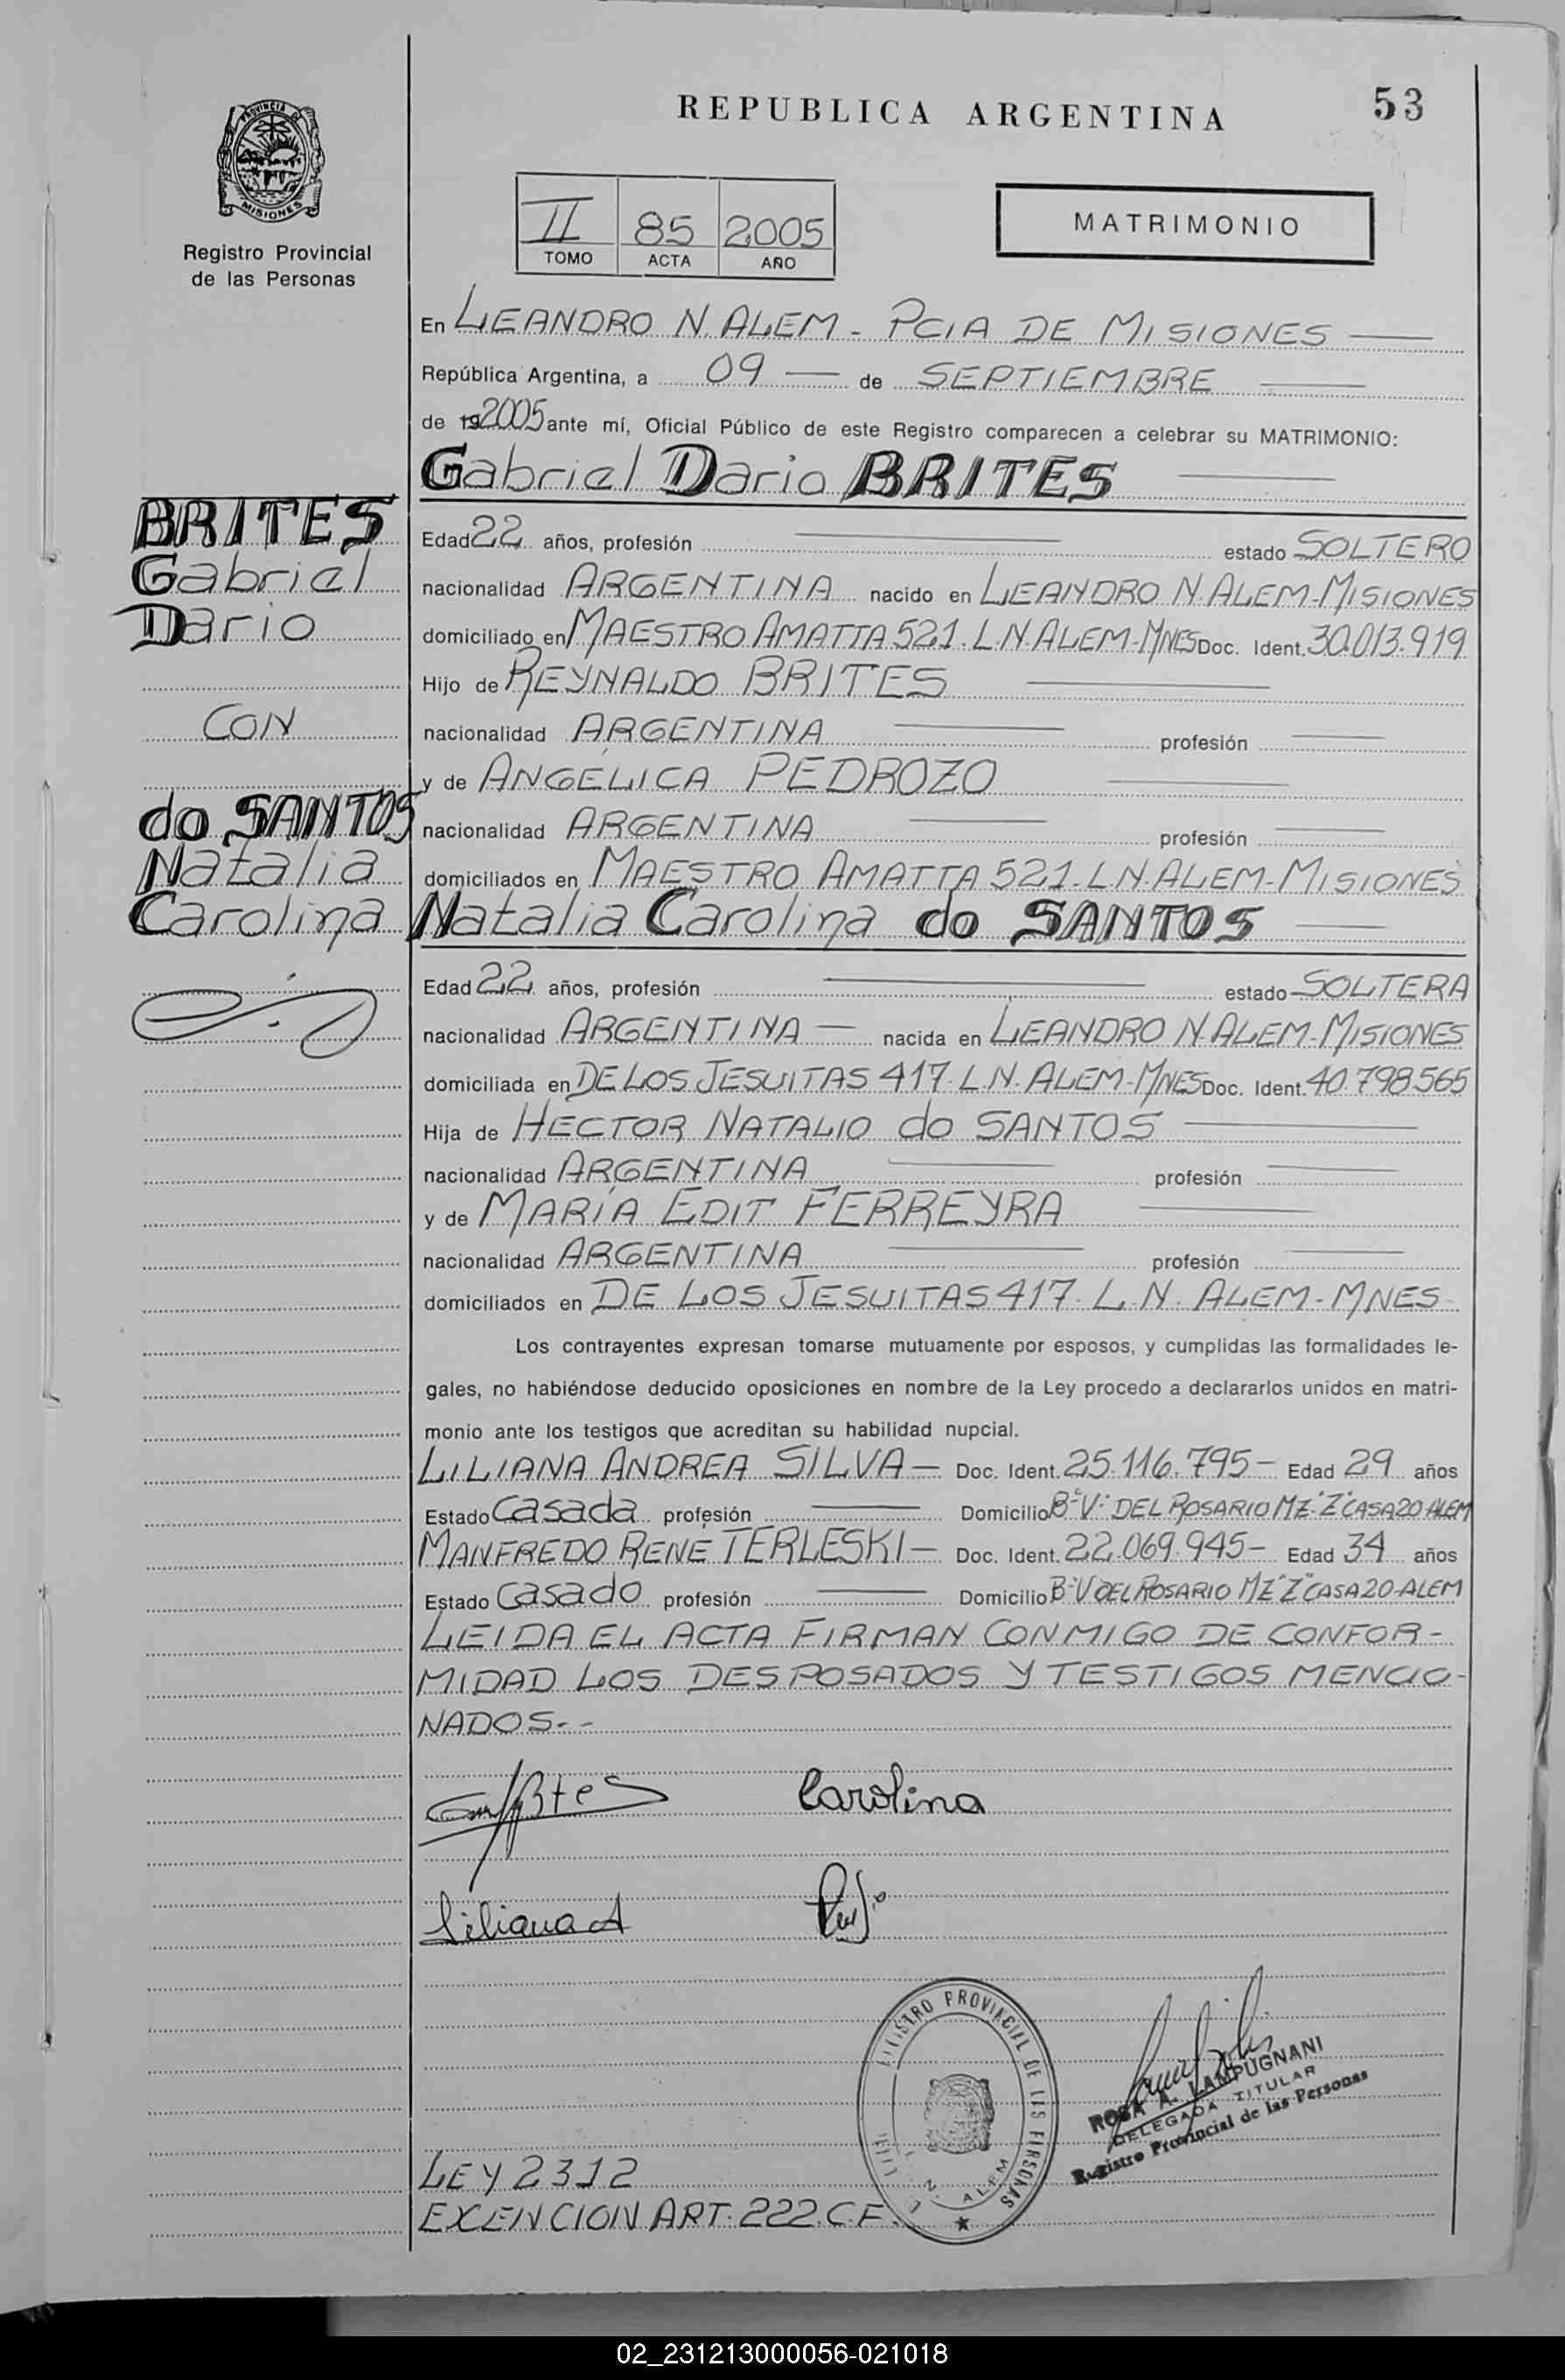 REPUBLICA ARGENTINA
53
PROVINCIA DE
MISIONES
Registro Provincial
de las Personas
II 85 2005
TOMO ACTA AÑO
MATRIMONIO
En LEANDRO N. ALEM - PCIA DE MISIONES
República Argentina, a 09 de SEPTIEMBRE
de 19 2005 ante mí, Oficial Público de este Registro comparecen a celebrar su MATRIMONIO:
Gabriel Dario BRITES
BRITES
Gabriel
Dario
CON
do SANTOS
Natalia
Carolina
Edad 22 años, profesión estado SOLTERO
nacionalidad ARGENTINA nacido en LEANDRO N. ALEM-MISIONES
domiciliado en MAESTRO AMATTA 521. L.N. ALEM-MNES Doc. Ident. 30.013.919
Hijo de REYNALDO BRITES
nacionalidad ARGENTINA profesión
y de ANGÉLICA PEDROZO
nacionalidad ARGENTINA profesión
domiciliados en MAESTRO AMATTA 521-L.N. ALEM-MISIONES
Natalia Carolina do SANTOS
Edad 22 años, profesión estado SOLTERA
nacionalidad ARGENTINA nacida en LEANDRO N. ALEM-MISIONES
domiciliada en DE LOS JESUITAS 417. L.N. ALEM-MNES Doc. Ident. 40.798.565
Hija de HECTOR NATALIO do SANTOS
nacionalidad ARGENTINA profesión
y de MARÍA EDIT FERREYRA
nacionalidad ARGENTINA profesión
domiciliados en DE LOS JESUITAS 417. L.N. ALEM-MNES
Los contrayentes expresan tomarse mutuamente por esposos, y cumplidas las formalidades le-
gales, no habiéndose deducido oposiciones en nombre de la Ley procedo a declararlos unidos en matri-
monio ante los testigos que acreditan su habilidad nupcial.
LILIANA ANDREA SILVA- Doc. Ident. 25.116.795- Edad 29 años
Estado Casada profesión Domicilio Bº Vº DEL ROSARIO MZ "Z" CASA 20 ALEM
MANFREDO RENÉ TERLESKI- Doc. Ident. 22.069.945- Edad 34 años
Estado Casado profesión Domicilio Bº V DEL ROSARIO MZ "Z" CASA 20-ALEM
LEIDA EL ACTA FIRMAN CONMIGO DE CONFOR-
MIDAD LOS DESPOSADOS Y TESTIGOS MENCIO-
NADOS.--
Carolina
Liliana A
REGISTRO PROVINCIAL DE LAS PERSONAS
L. N. ALEM
ROSA A. LAMPUGNANI
DELEGADA TITULAR
Registro Provincial de las Personas
LEY 2312
EXENCION ART. 222. C.F.
02_231213000056-021018